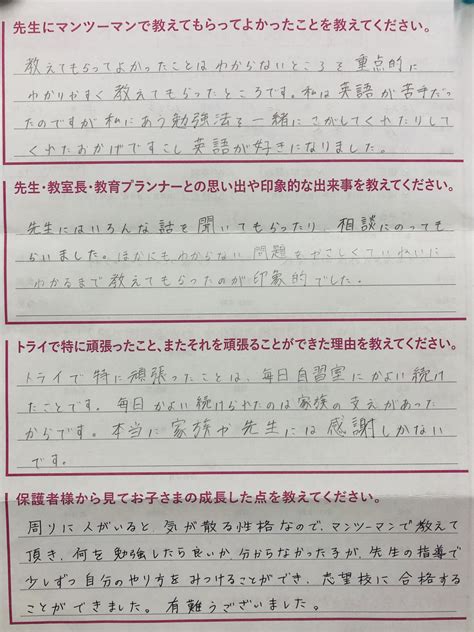 先生にマンツーマンで教えてもらってよかったことを教えてください。
教えてもらってよかったことはわからないところを重点的に
わかりやすく教えてもらったところです。私は英語が苦手だっ
たのですが私にあう勉強法を一緒にさがしてくれたりして
くれたおかげですこし英語が好きになりました。
先生・教室長・教育プランナーとの思い出や印象的な出来事を教えてください。
先生にはいろんな話を聞いてもらったり、相談にのっても
らいました。ほかにもわからない問題をやさしくていねいに
わかるまで教えてもらったのが印象的でした。
トライで特に頑張ったこと、またそれを頑張ることができた理由を教えてください。
トライで特に頑張ったことは、毎日自習室にかよい続け
たことです。毎日かよい続けられたのは家族の支えがあった
からです。本当に家族や先生には感謝しかない
です。
保護者様から見てお子さまの成長した点を教えてください。
周りに人がいると、気が散る性格なので、マンツーマンで教えて
頂き、何を勉強したら良いか分からなかった子が、先生の指導で
少しずつ自分のやり方をみつけることができ、志望校に合格する
ことができました。有難うございました。